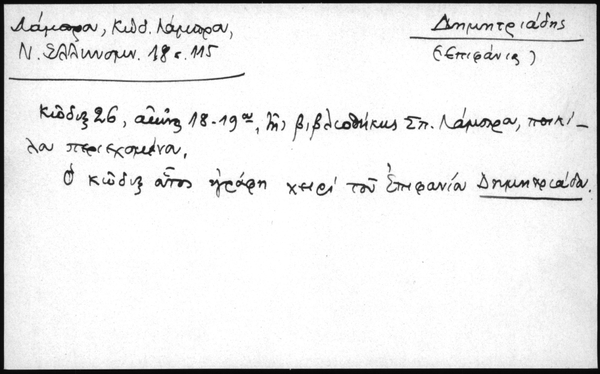 Λάμπρου, Κώδ. Λάμπρου,
Ν. Ἑλληνομν. 18 σ. 115
Δημητριάδης
(Ἐπιφάνιος)
Κῶδιξ 26, αἰῶνος 18-19ου, τῆς βιβλιοθήκης Σπ. Λάμπρου, ποικί-
λα περιεχομένου.
Ὁ κῶδιξ οὗτος ἐγράφη χειρὶ τοῦ Ἐπιφανίου Δημητριάδου.